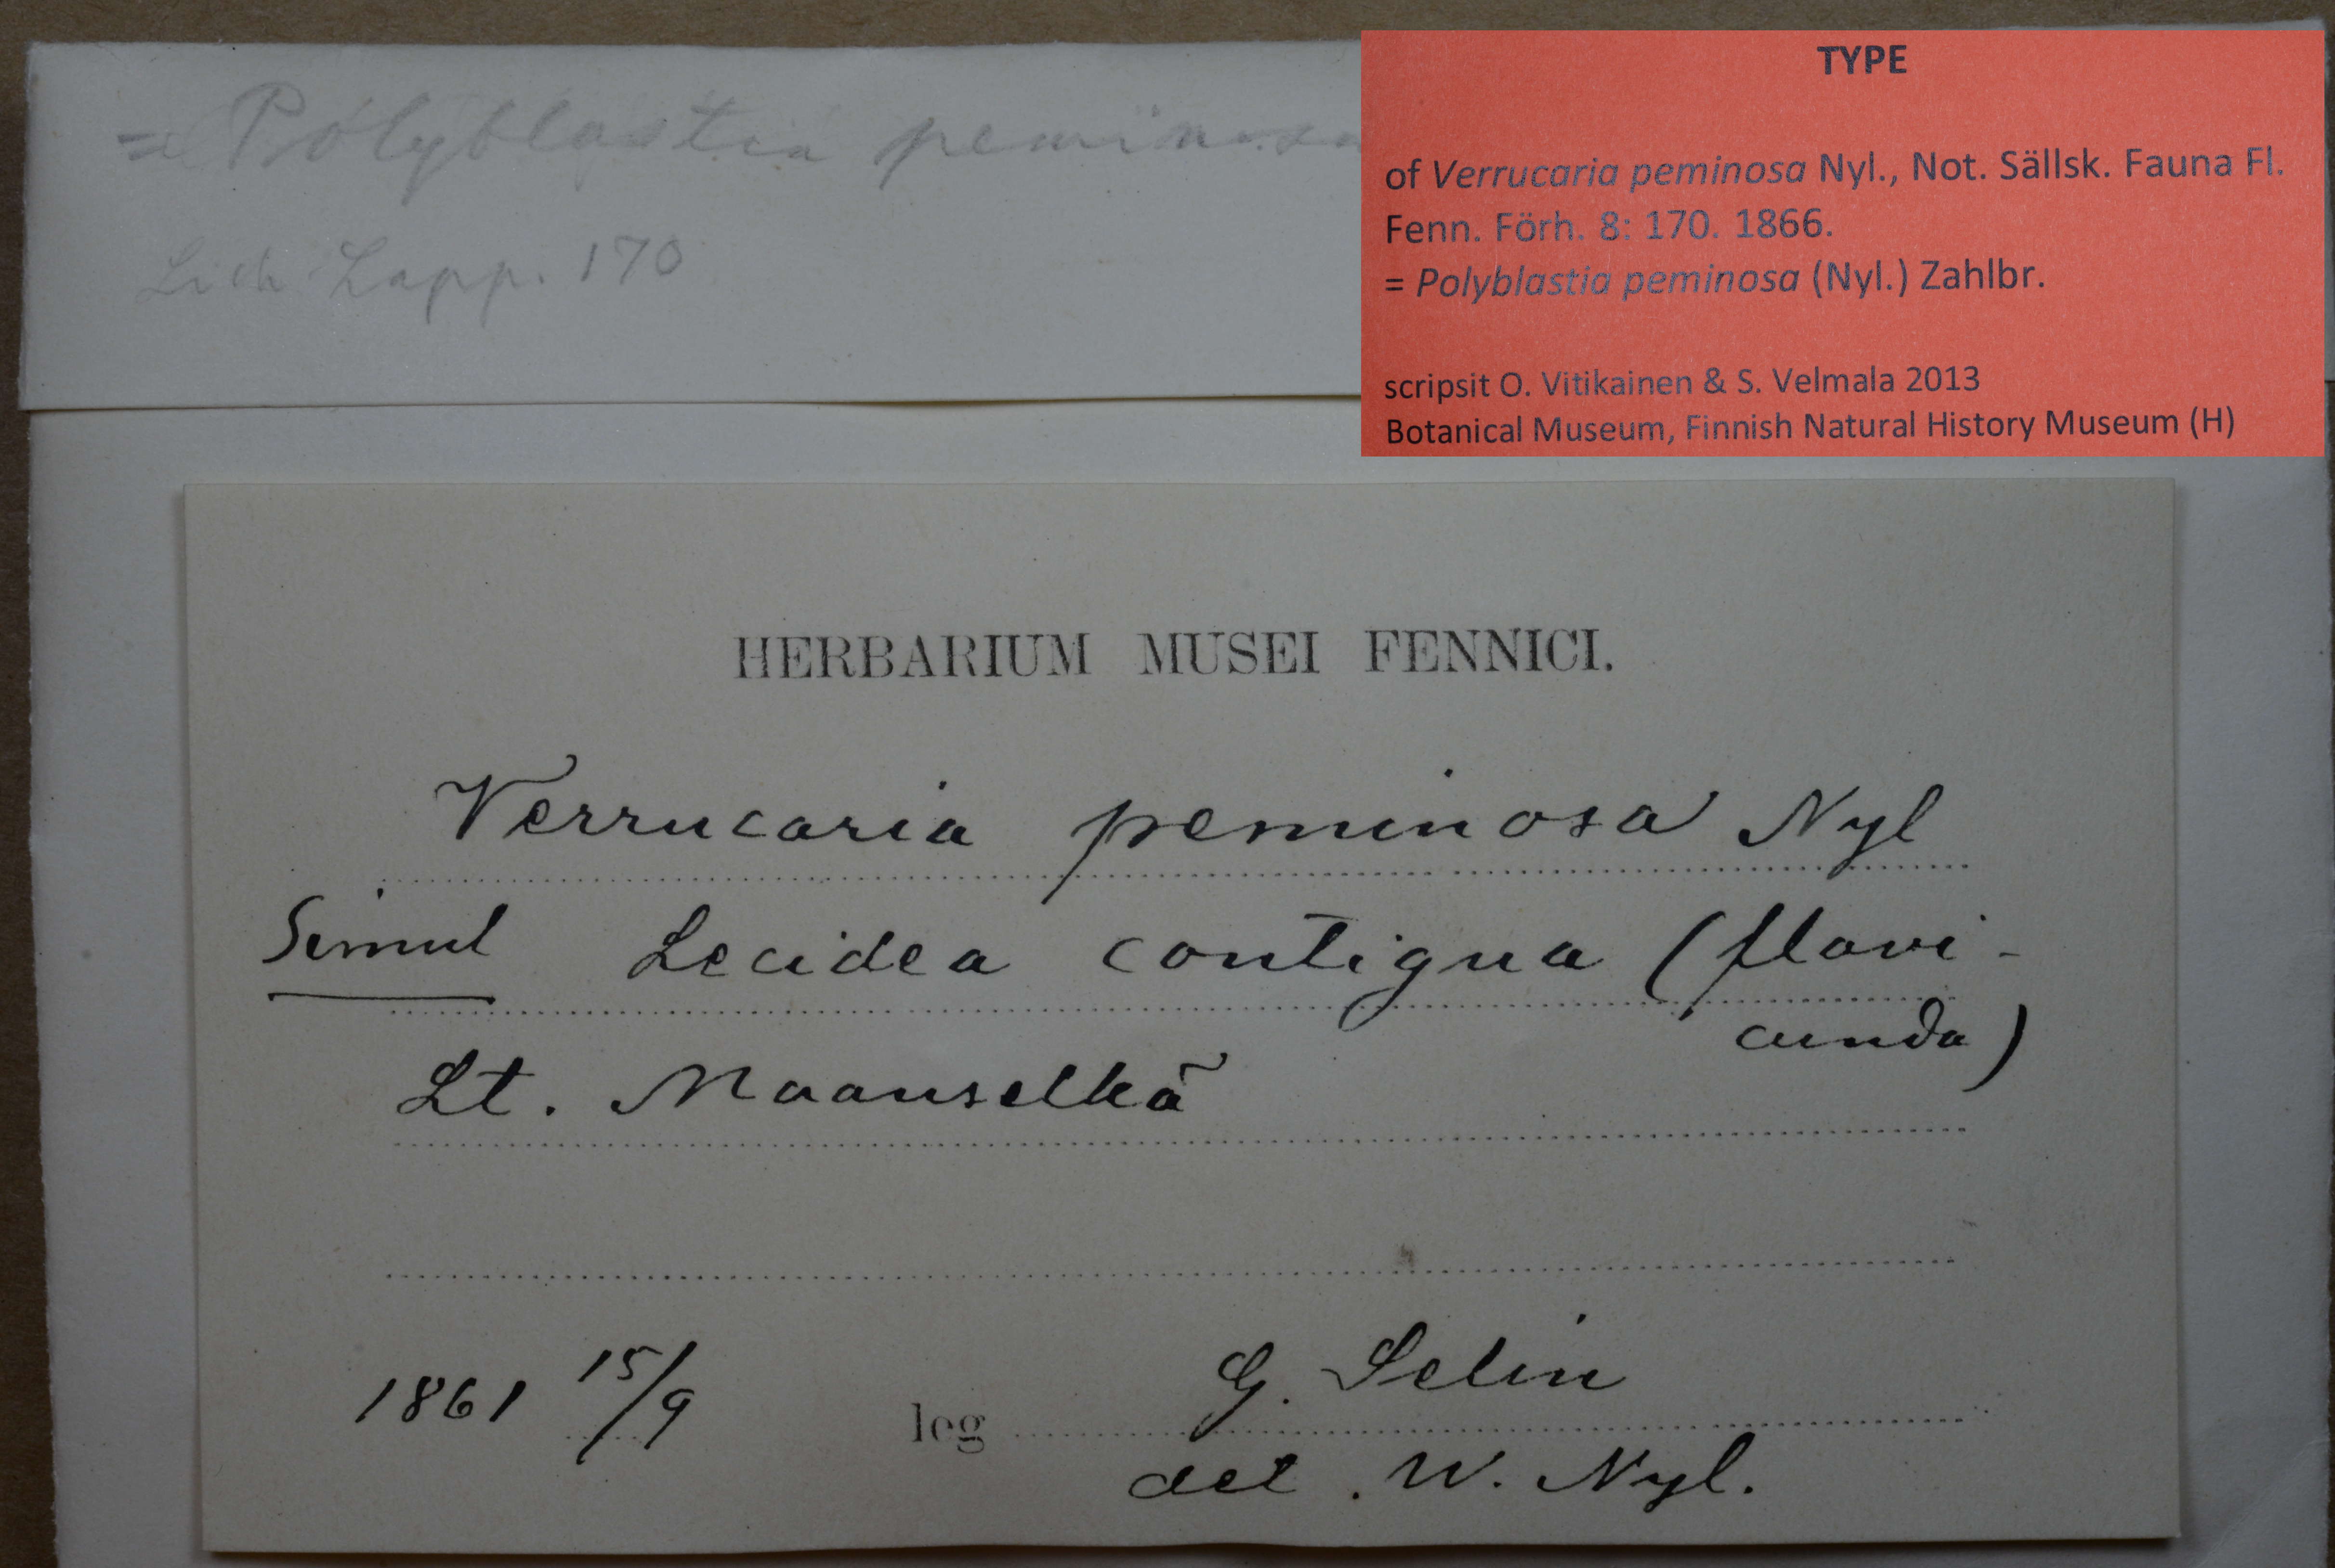 = Polyblastia peminosa
Lich Lapp. 170
TYPE
of Verrucaria peminosa Nyl., Not. Sällsk. Fauna Fl.
Fenn. Förh. 8: 170. 1866.
= Polyblastia peminosa (Nyl.) Zahlbr.
scripsit O. Vitikainen & S. Velmala 2013
Botanical Museum, Finnish Natural History Museum (H)
HERBARIUM MUSEI FENNICI.
Verrucaria peminosa Nyl
Simul Lecidea contigua (flavi-
cunda)
Lt. Maanselkä
1861 15/9 leg G. Selin
det. W. Nyl.